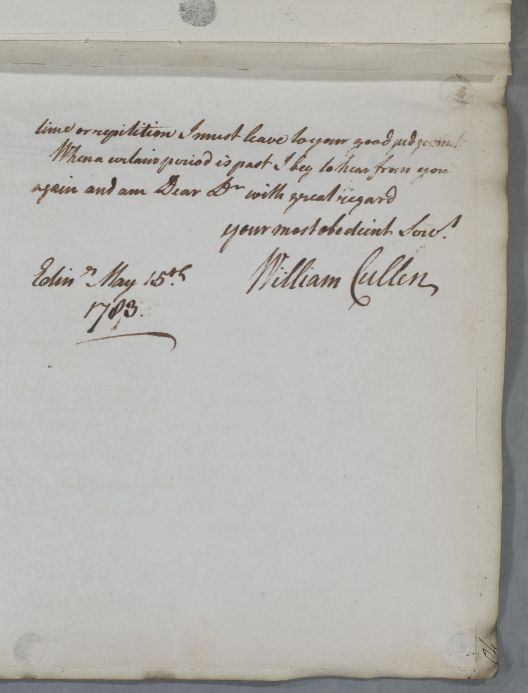 time or repitition I must leave to your good judgement
When a certain period is past I beg to hear from you
again and am Dear Dr with great regard
your most obedient Servt.
Edinr May 15th William Cullen
1783.